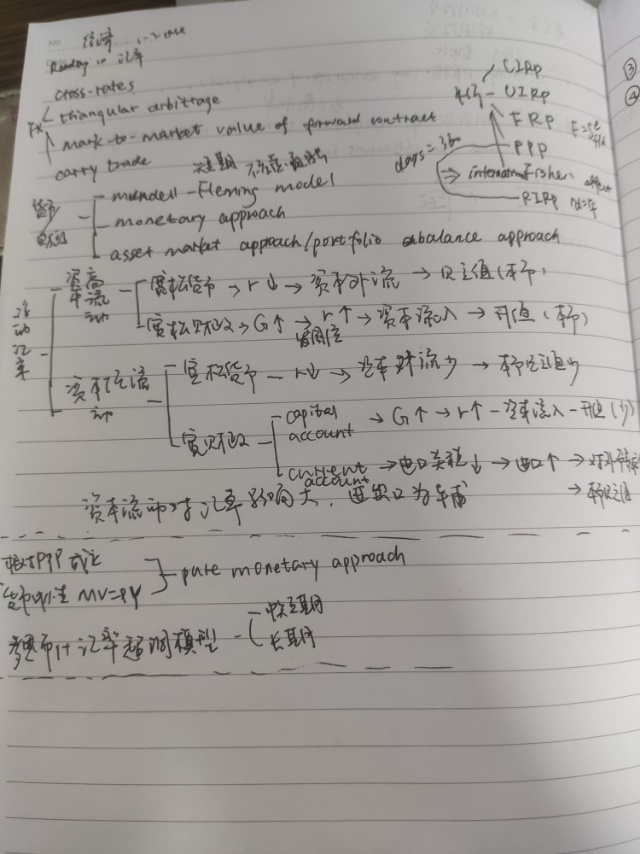 NO. 经济
Reading 10 汇率
cross-rates
FX triangular arbitrage
mark-to-market value of forward contract
carry trade
CIRP
UIRP
FRP
PPP
international Fisher effect
RIRP
days = 360
短期
mundell-Fleming model
monetary approach
asset market approach/portfolio balance approach
浮动汇率
资本高流动 宽松货币 → r↓ → 资本外流 → 贬值(本币)
宽松财政 → G↑ → r↑ → 资本流入 → 升值(本币)
发国债
资本低流动 宽松货币 — r↓ → 资本外流少 → 本币贬值少
宽财政 capital account → G↑ → r↑ - 资本流入 - 升值(少)
current account → 出口关税↓ → 进口↑ →
→ 本币贬值
资本流动对汇率影响大, 进出口为车甫
相对PPP成立
货币中性 MV=PY
pure monetary approach
多恩布什汇率超调模型 中短期
长期